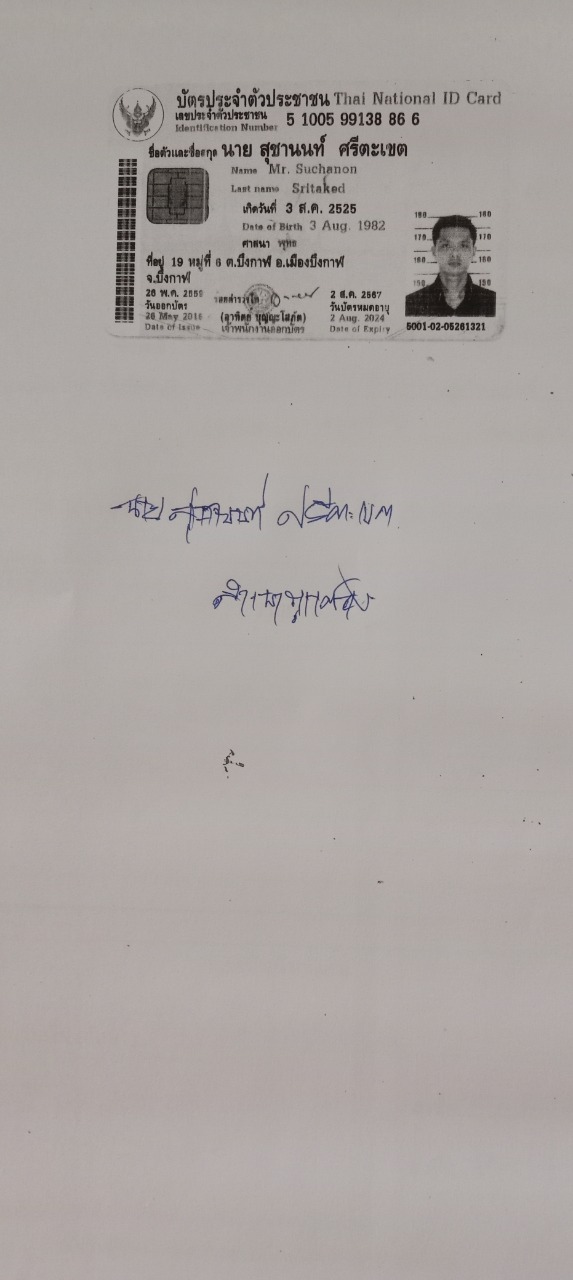 บัตรประจำตัวประชาชน Thai National ID Card
เลขประจำตัวประชาชน 5 1005 99138 86 6
Identification Number
ชื่อตัวและชื่อสกุล นาย สุชานนท์ ศรีตะเขต
Name Mr. Suchanon
Last name Sritaked
เกิดวันที่ 3 ส.ค. 2525
Date of Birth 3 Aug. 1982
ศาสนา พุทธ
ที่อยู่ 19 หมู่ที่ 6 ต.บึงกาฬ อ.เมืองบึงกาฬ
จ.บึงกาฬ
26 พ.ค. 2559
วันออกบัตร
26 May 2016
Date of Issue
เจ้าพนักงานออกบัตร
2 ส.ค. 2567
วันบัตรหมดอายุ
2 Aug. 2024
Date of Expiry
180 180
170 170
160 160
150 150
5001-02-05261321
นาย สุชานนท์ ศรีตะเขต
สำเนาถูกต้อง